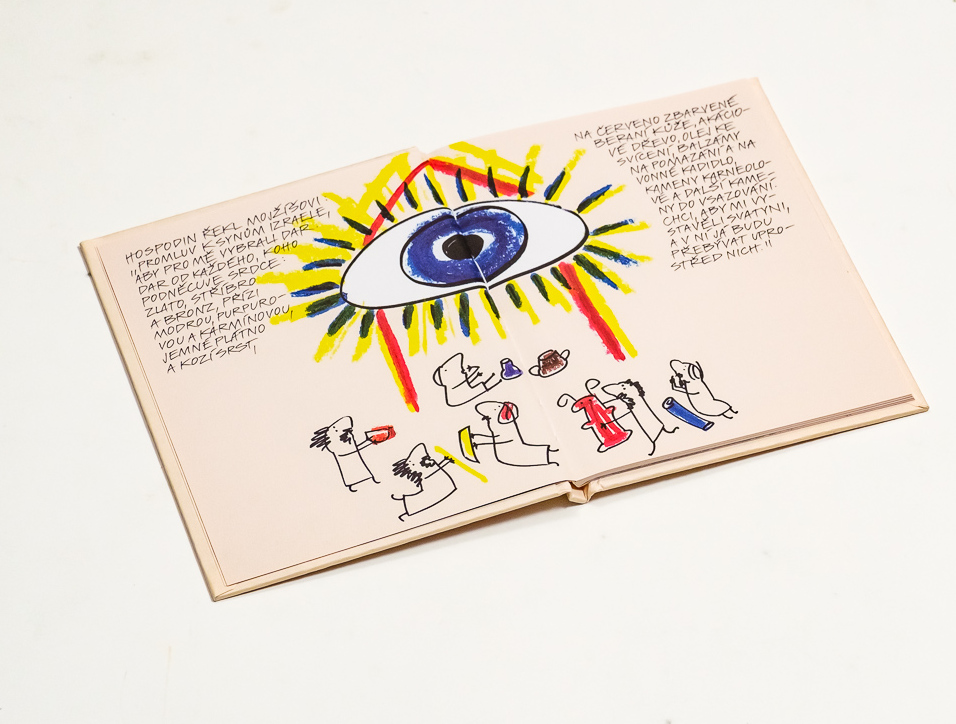 HOSPODIN ŘEKL MOJŽÍŠOVI:
„PROMLUV K SYNŮM IZRAELE,
ABY PRO MĚ VYBRALI DAR.
DAR OD KAŽDÉHO, KOHO
PODNĚCUJE SRDCE:
ZLATO, STŘÍBRO
A BRONZ, PŘÍZI
MODROU, PURPURO-
VOU A KARMÍNOVOU,
JEMNÉ PLÁTNO
A KOZÍ SRST,
NA ČERVENO ZBARVENÉ
BERANÍ KŮŽE, AKÁCIO-
VÉ DŘEVO, OLEJ KE
SVÍCENÍ, BALZÁMY
NA POMAZÁNÍ A NA
VONNÉ KADIDLO,
KAMENY KARNEOLO-
VÉ A DALŠÍ KAME-
NY DO VSAZOVÁNÍ.
CHCI, ABY MI VY-
STAVĚLI SVATYNI,
A V NÍ JÁ BUDU
PŘEBÝVAT UPRO-
STŘED NICH."